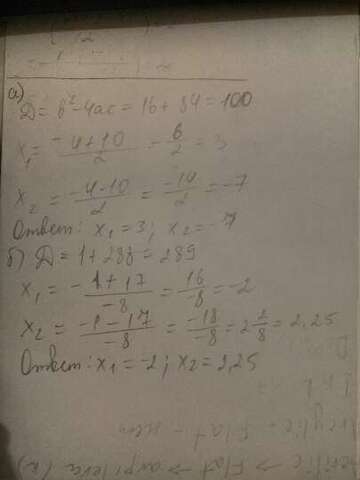 а)
Д = b² - 4ac = 16 + 84 = 100
x₁ = (-4+10)/2 = 6/2 = 3
x₂ = (-4-10)/2 = -14/2 = -7
Ответ: x₁ = 3; x₂ = -7
б) Д = 1 + 288 = 289
x₁ = (-1+17)/-8 = 16/-8 = -2
x₂ = (-1-17)/-8 = -18/-8 = 2 2/8 = 2,25
Ответ: x₁ = -2; x₂ = 2,25